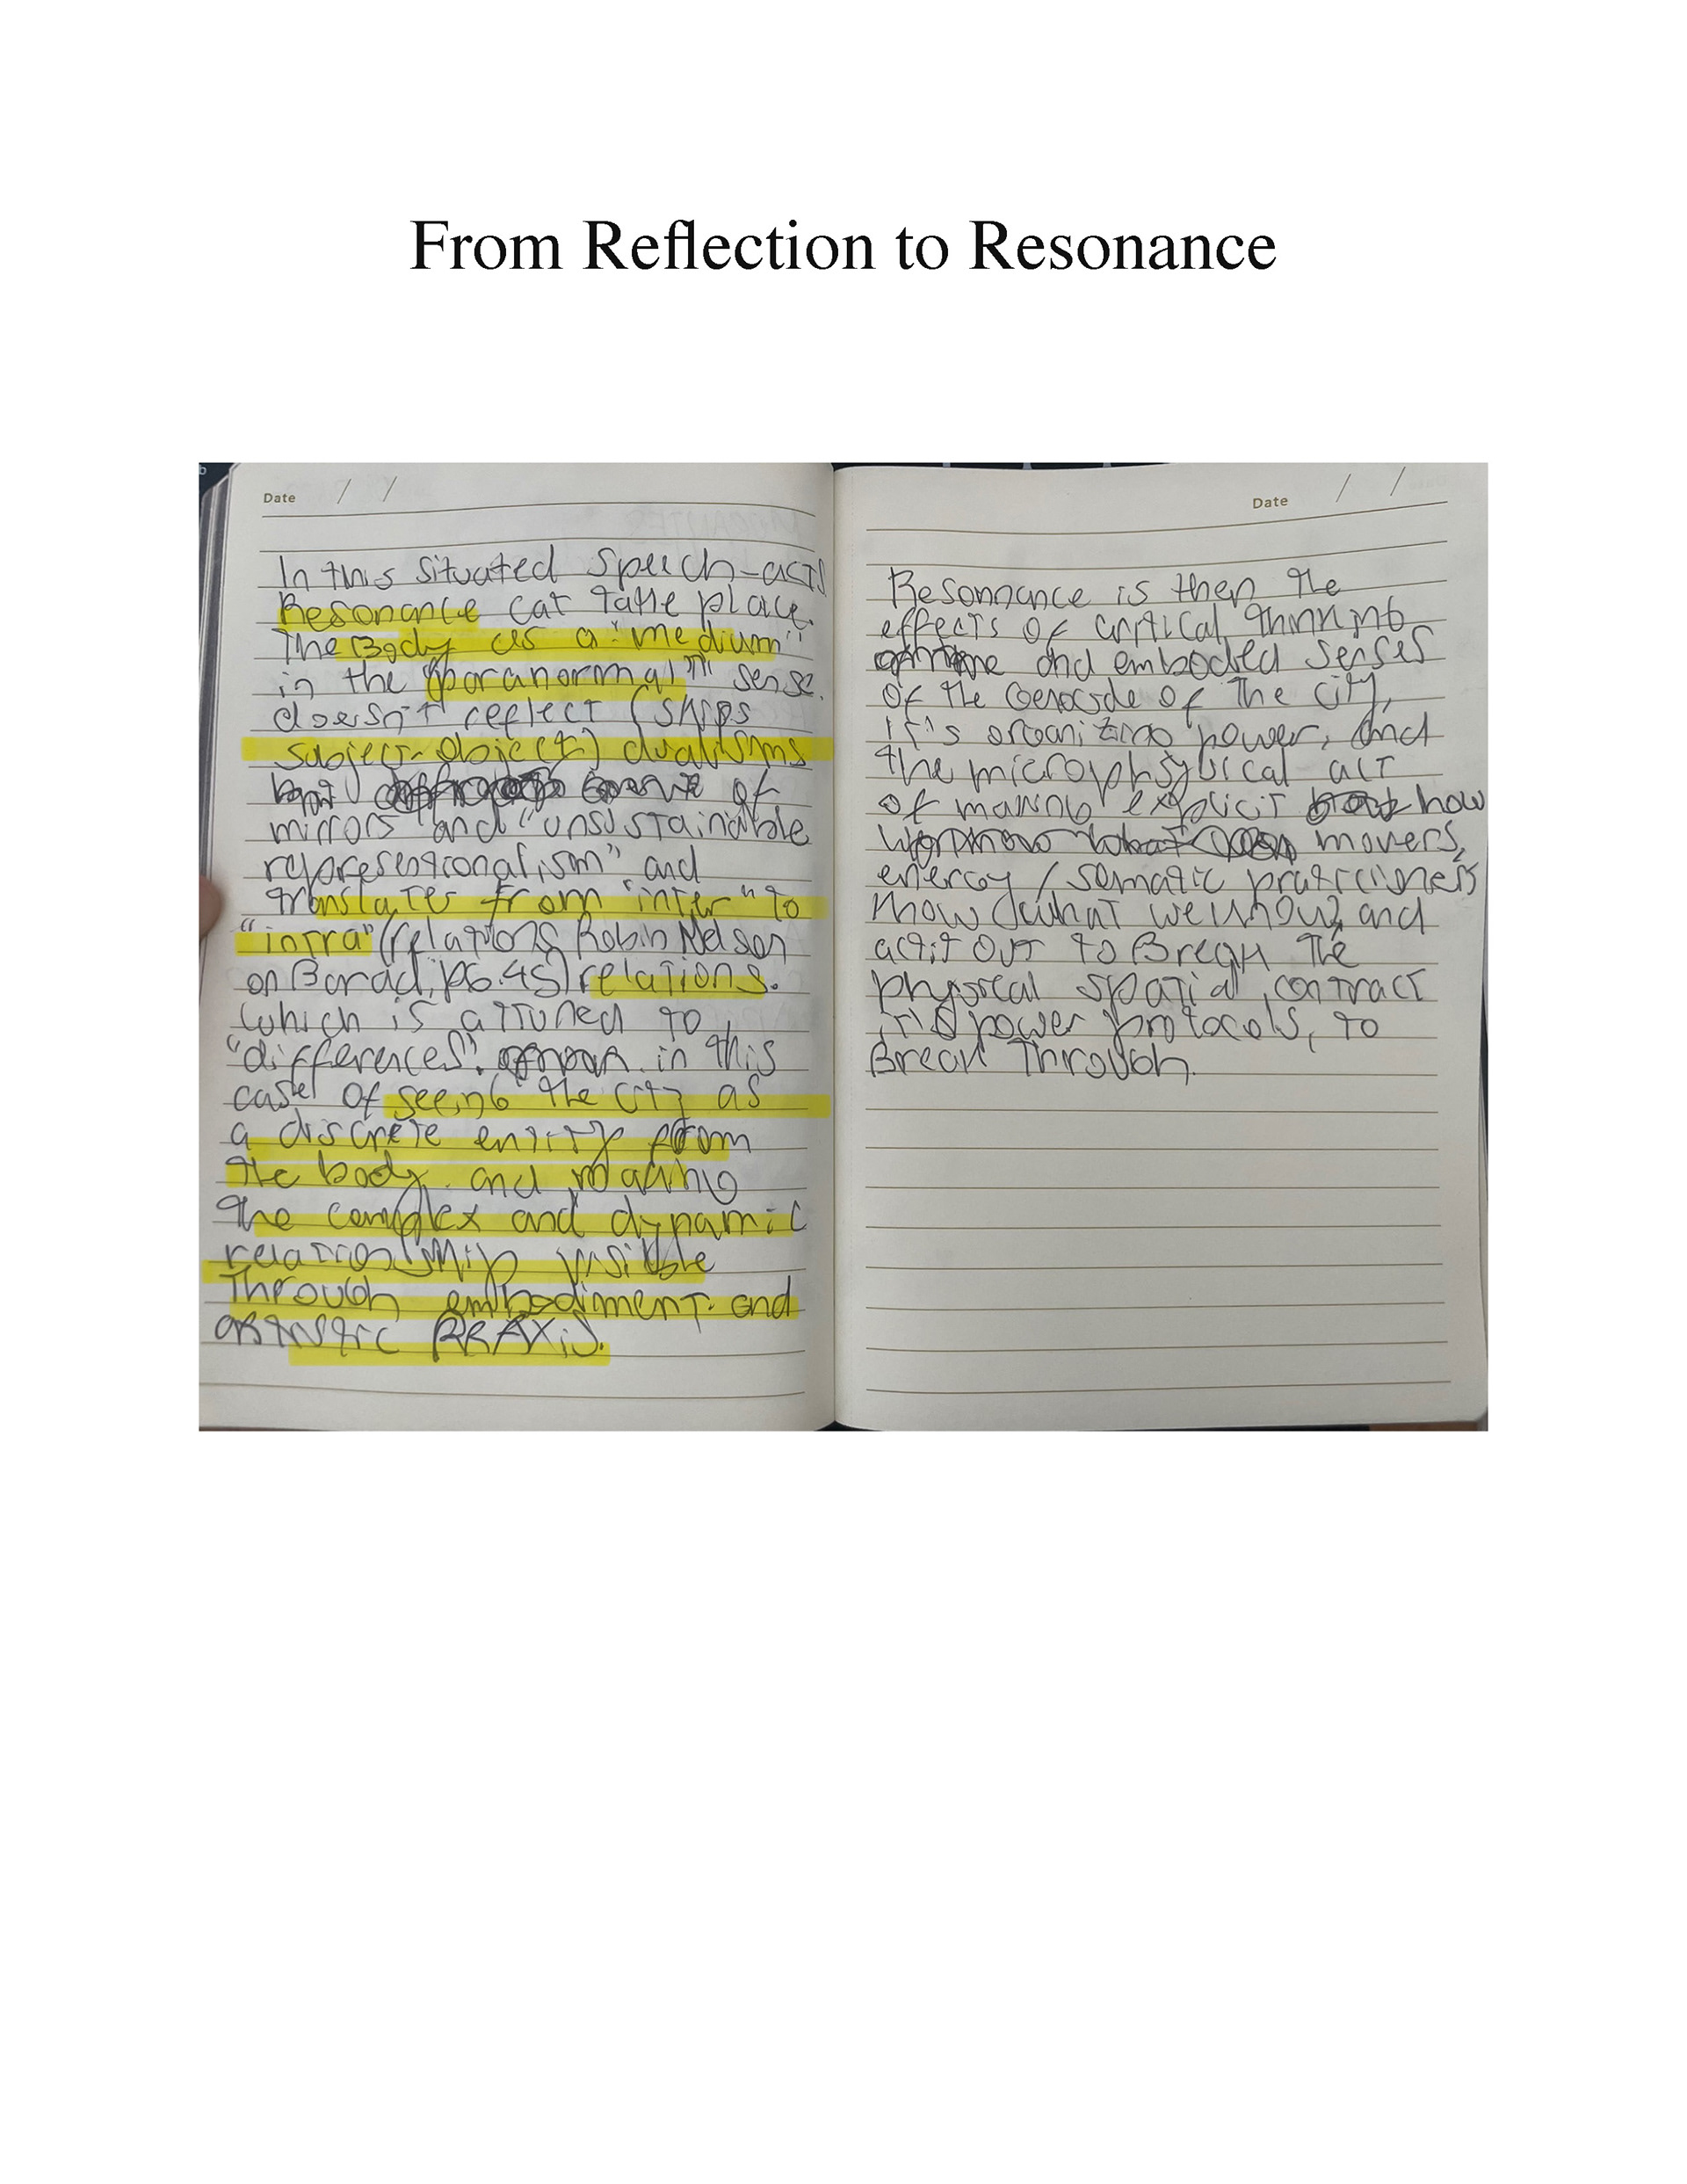 From Reflection to Resonance
Date / /
In this situated speech-acts
Resonance cat take place.
The Body as a "medium"
in the "paranormal" sense.
doesn't reflect (skips
subject-object) dualisms
of
mirrors and "unsustainable
representionalism" and
translates from "inter" to
"intra" (relations, Robin Nelson
on Barad, pg. 45) relations.
which is attuned to
"differences". in this
case of seeing the city as
a discrete entity from
the body. and making
the complex and dynamic
relationship visible
through embodiment and
artistic PRAXIS.
Date / /
Resonnance is then the
effects of critical thinking
and embodied senses
of the of the city,
it's organizing power, and
the act
of making explicit how
movers,
energy / somatic
know what we know and
act it out to Break the
physical spatial contract
power protocols, to
Break Through.